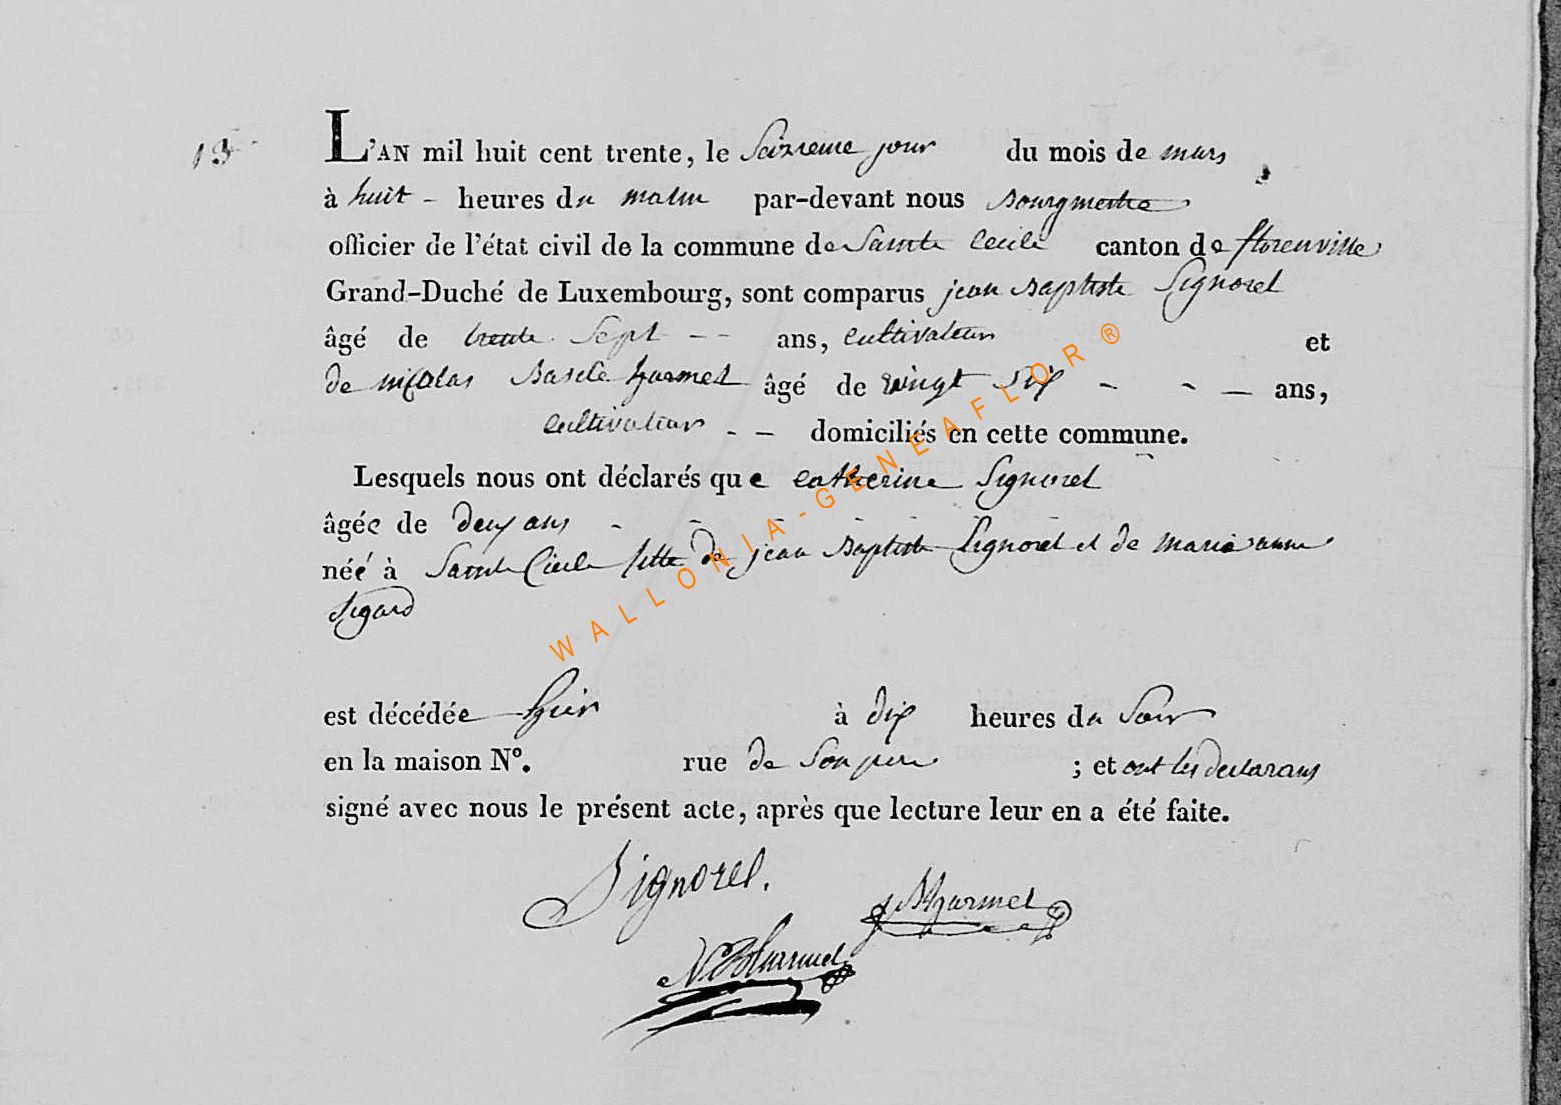 13
L'AN mil huit cent trente, le Seizieme jour du mois de mars
à huit - heures du matin par-devant nous Bourgmestre
officier de l'état civil de la commune de Sainte Cecile canton de florenville
Grand-Duché de Luxembourg, sont comparus jean Baptiste Signorel
âgé de trente Sept -- ans, cultivateur et
de nicolas Basile harmel âgé de vingt Six - - — ans,
cultivateur - - domiciliés en cette commune.
Lesquels nous ont déclarés que catherine Signorel
âgée de deux ans - - - - -
née à Sainte Cecile fille de jean Baptiste Signorel et de marie anne
Sigard
est décédée hier à dix heures du Soir
en la maison N°. rue de Son pere ; et ont les declarans
signé avec nous le présent acte, après que lecture leur en a été faite.
Signorel.
J B harmel
N B Harmel
WALLONIA-GENEAFLOR®